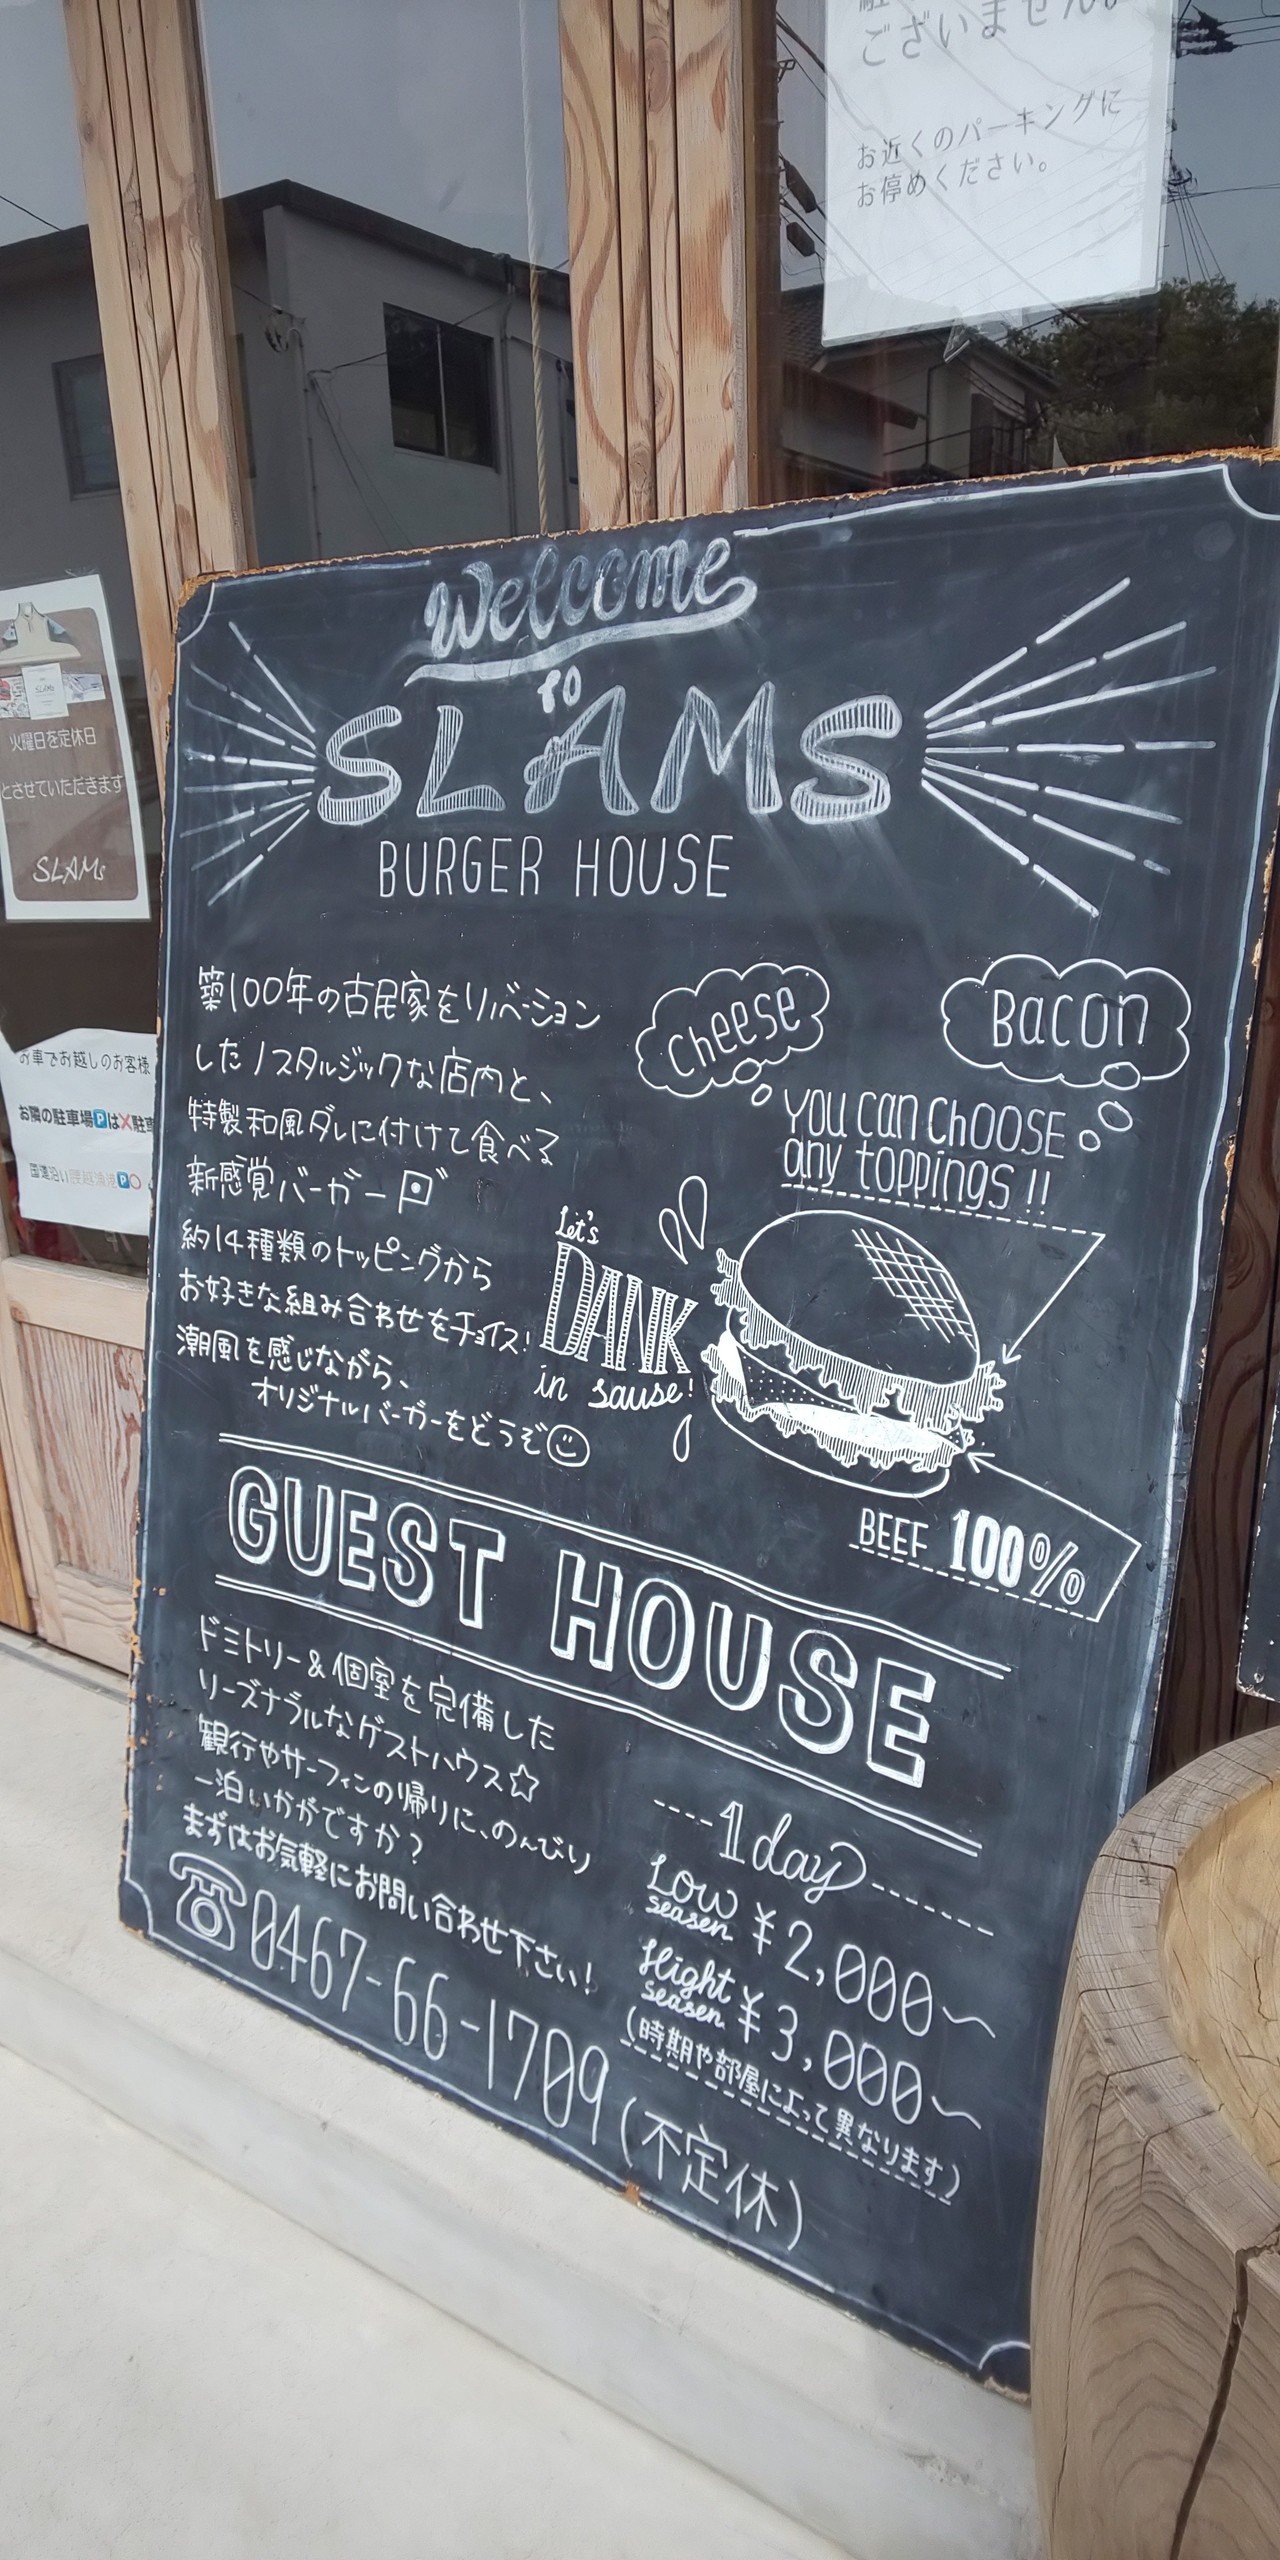 ございません。
お近くのパーキングに
お停めください。
火曜日を定休日
とさせていただきます
SLAMs
お車でお越しのお客様
お隣の駐車場🅿は❌駐車
国道沿い腰越漁港🅿⭕
Welcome
TO
SLAMS
BURGER HOUSE
築100年の古民家をリノベーション
したノスタルジックな店内と、
特製和風ダレに付けて食べる
新感覚バーガー
約14種類のトッピングから
お好きな組み合わせをチョイス!
潮風を感じながら、
オリジナルバーガーをどうぞ☺
Cheese
Bacon
YOU can ChOOSE
any toppings!!
Let's
DANK
in sause!
BEEF 100%
GUEST HOUSE
ドミトリー&個室を完備した
リーズナブルなゲストハウス☆
観行やサーフィンの帰りに、のんびり
一泊いかがですか?
まずはお気軽にお問い合わせ下さい!
☎0467-66-1709 (不定休)
1day
Low seasen ¥2,000〜
Hight seasen ¥3,000〜
(時期や部屋によって異なります)